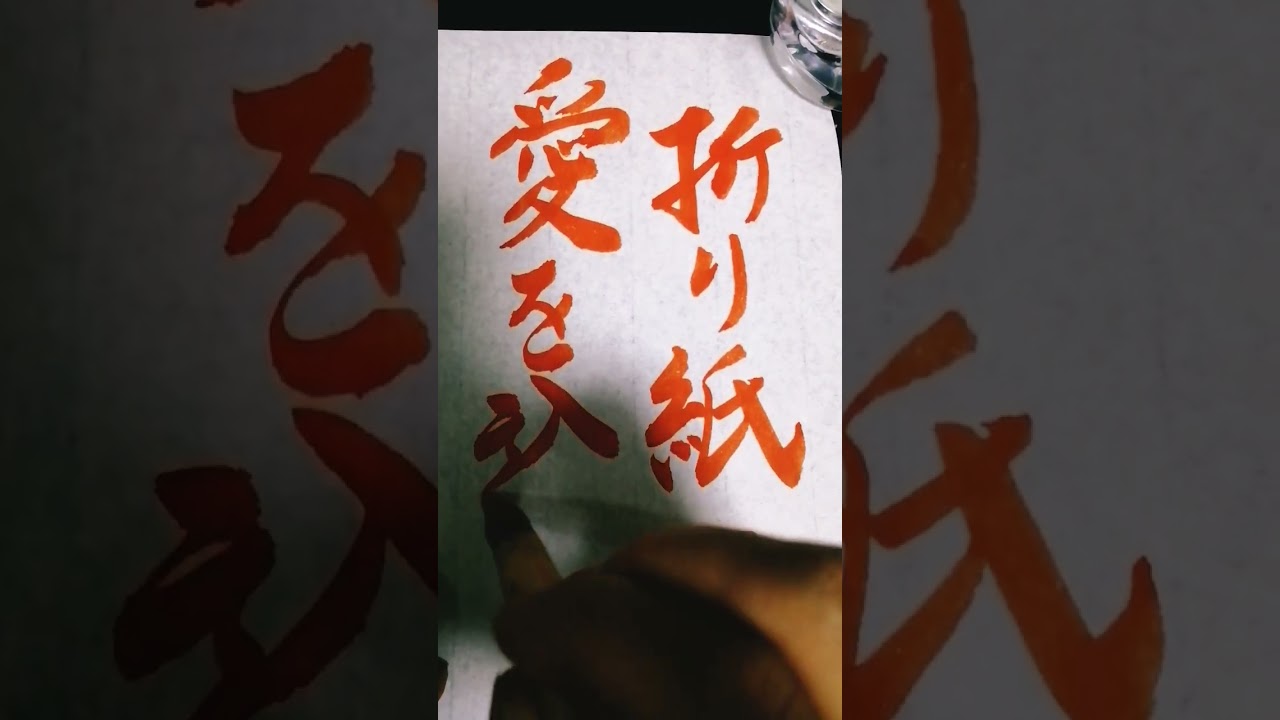 折り紙
愛を込